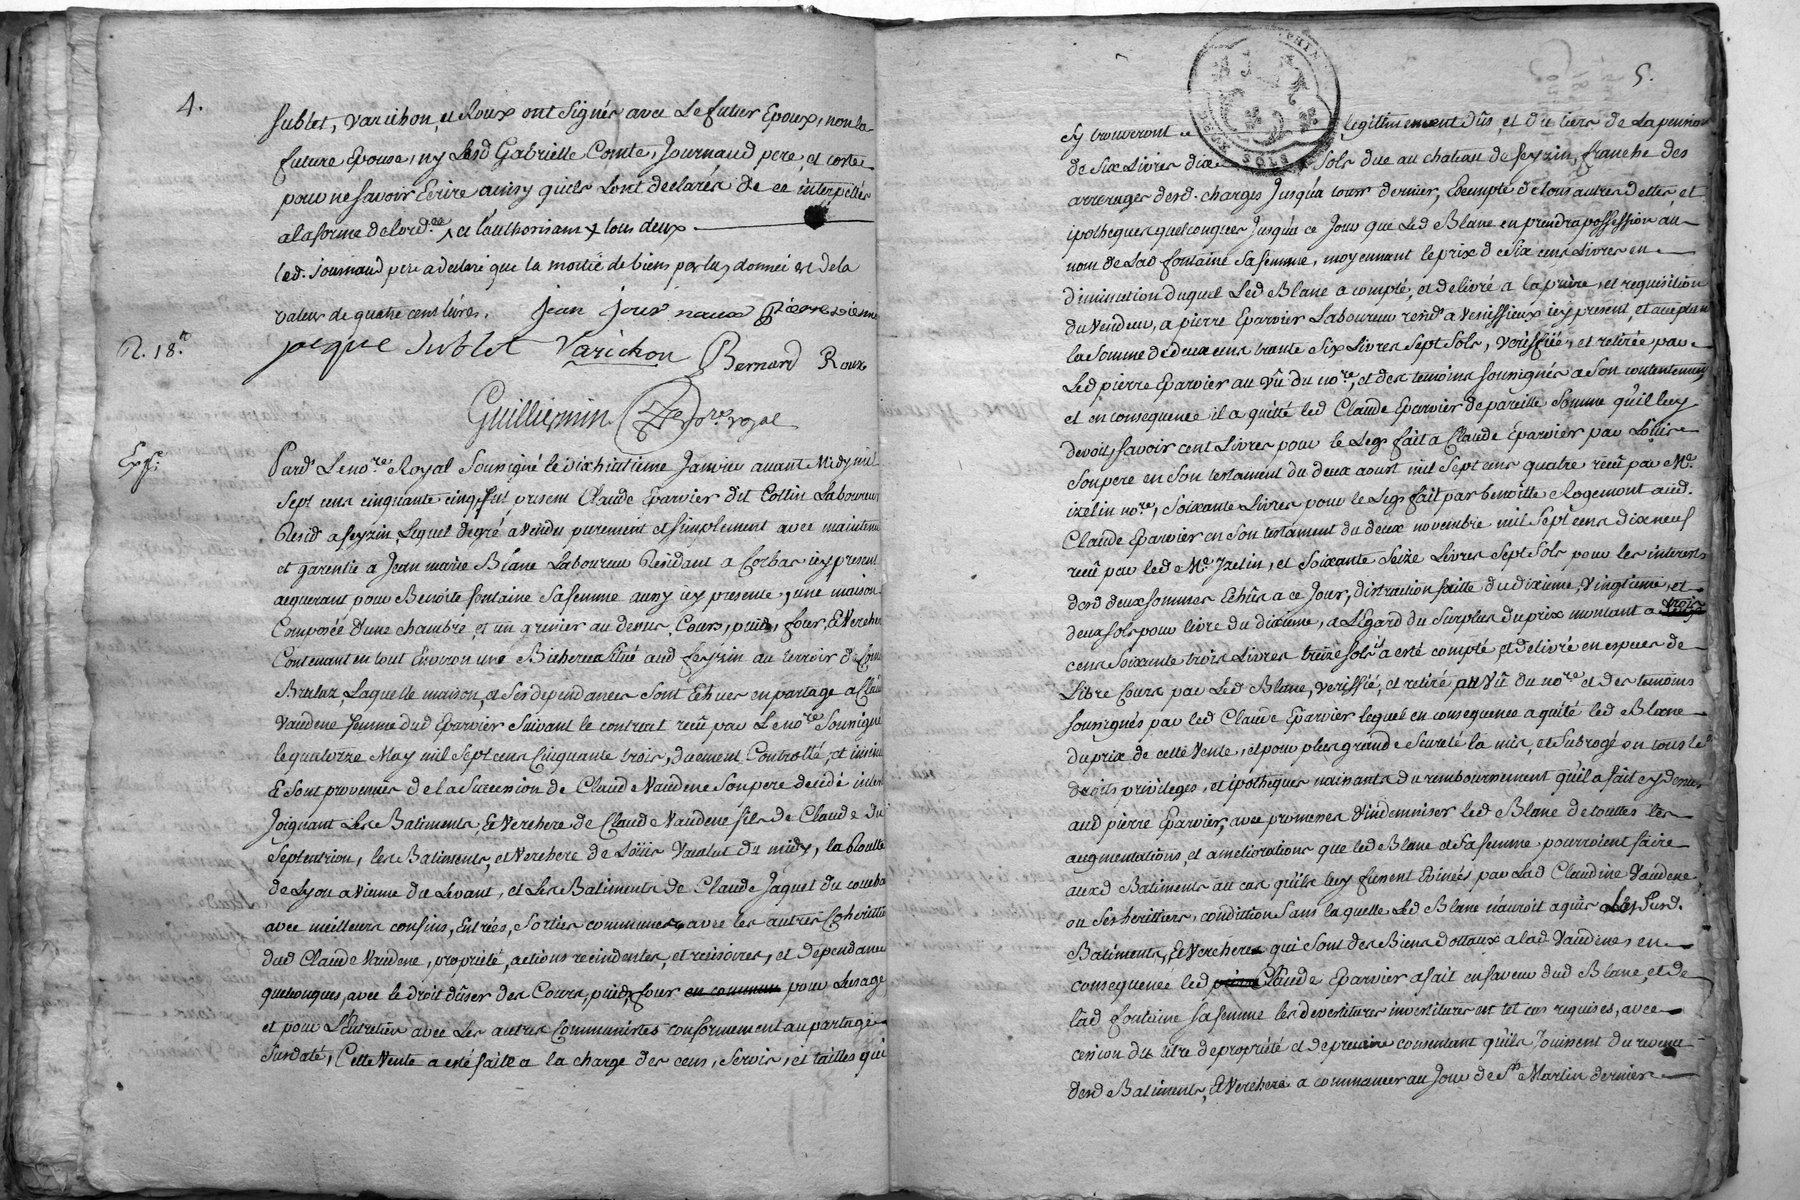 4.
sublet, varichon, et Roux ont signés avec le futur Epoux, non la
future Epouse, ny lesd Gabrielle Comte, Journaud pere, et
pour ne savoir Ecrire ainsy quils lont declarés de ce interpellés
a la forme de lord.ce et lauthorisant tous deux
led. journaud pere a declaré que la moitié de biens par luy donnée est de la
valeur de quatre cent livres. jean jour naux Pierre
R. 18.
jacque sublet Varichon Bernard Roux
Guilliermin no.re royal
Exp.
Pard. le no.re Royal soussigné le dixhuitieme Janvier avant Midy mil
sept cens cinquante cinq fut présent Claude Eparvier dit Collin Laboureur
Resid a feyzin, Lequel degré a vendu purement et simplement avec maintenue
et garentie a Jean marie Blanc Laboureur Résidant a Corbas icy present
acquerant pour Benoite fontaine sa femme aussy icy presente, une maison
Composée d'une chambre, et un grenier au dessus, Cours, puids, four, & Verchere
Contenant en tout Environ une Bicherée situé aud feyzin au terroir de
Laquelle maison, et ses dependances sont Echues en partage a
Vaudene femme dud Eparvier suivant le contrat reçû par le no.re soussigné
le quatorze May mil sept cens Cinquante trois, duement Controllé, et insin
& sont provenues de la succession de Claude Vaudene son pere decédé
Joignant les Batiments & Verchere de Claude Vaudene fils de Claude du
septentrion, les Batiments, et Verchere de Loüis du midy, la Routte
de Lyon a Vienne du Levant, et les Batiments de Claude Jaquet du couchan
avec meilleurs confins, Entrés, sorties communes avec les autres Cohéritiers
dud Claude Vaudene, propriété, actions rescindentes, et rescisoires, et dependances
quelconques, avec le droit d'user des Cours, puids, four en commun pour Lusage
et pour L'Entretien avec les autres Communistes conformement au partage
susdaté, Cette Vente a esté faitte a la charge des cens, servis, et tailles qui
5.
sy trouveront legitimement dûs, et du tiers de la pension
de six livres dix sols due au chateau de feyzin, franche des
arrerages desd. charges Jusqu'a tour dernier, Exempte de tous autres dettes, et
ipotheques quelconques Jusqu'a ce Jour que led Blanc en prendra possession au
nom de lad fontaine sa femme, moyennant le prix de six cens livres en
diminution duquel led Blanc a compté, et delivré a la priere, et requisition
du vendeur, a pierre Eparvier Laboureur resid a Venissieux icy present, et acceptant
la somme de deux cens trante six livres sept sols, veriffiée, et retirée par
led pierre Eparvier au vû du no.re, et des temoins soussignés a son contentement,
et en consequence il a quitté led Claude Eparvier de pareille somme qu'il luy
devoit, savoir cent livres pour le Legs fait a Claude Eparvier par Loüis
son pere en son testament du deux aoust mil sept cens quatre reçû par M.e
izelin no.re, soixante livres pour le legs fait par benoitte Rogemont aud.
Claude Eparvier en son testament du deux novembre mil sept cens dix neuf
reçû par led M.e Izelin, et soixante seize livres sept sols pour les interests
desd deux sommes Echûs a ce Jour, distraction faitte du dixieme, Vingtieme, et
deux sols pour livre du dixieme, a L'egard du surplus du prix montant a trois
cens soixante trois livres treize sols a esté compté, et delivré en especes de
Libre Cours par led Blanc, veriffié, et retiré au Vû du no.re et des temoins
soussignés par led Claude Eparvier lequel en consequence a quité led Blanc
du prix de cette vente, et pour plus grande seureté la mis, et subrogé en tous les
droits privileges, et ipotheques naissants du remboursement qu'il a fait cy dessus
aud pierre Eparvier, avec promesses d'indemniser led Blanc de toutes les
augmentations, et ameliorations que led Blanc et sa femme pourroient faire
auxd Batiments au cas qu'ils luy fussent Evincés par lad Claudine Vaudene,
ou ses heritiers, condition sans laquelle led Blanc n'auroit aquis Les susd.
Batiments, & Verchere qui sont des Biens dottaux a lad Vaudene, en
consequence led Claude Eparvier a fait en faveur dud Blanc, et de
lad fonteine sa femme les devestitures investitures en tel cas requises, avec
cession du titre de propriété et de precaire consentant qu'ils Jouissent du revenu
desd Batiments, & Verchere a commancer au Jour de S.t Martin dernier